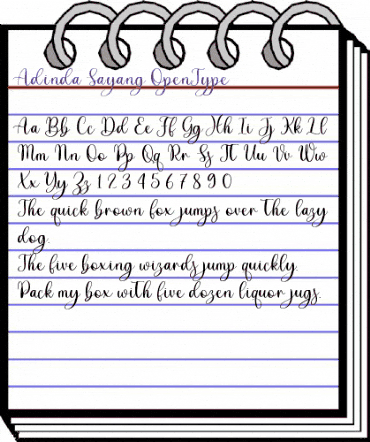 Adinda Sayang OpenType
Aa Bb Cc Dd Ee Ff Gg Hh Ii Jj Kk Ll
Mm Nn Oo Pp Qq Rr Ss Tt Uu Vv Ww
Xx Yy Zz 1 2 3 4 5 6 7 8 9 0
The quick brown fox jumps over the lazy
dog.
The five boxing wizards jump quickly.
Pack my box with five dozen liquor jugs.